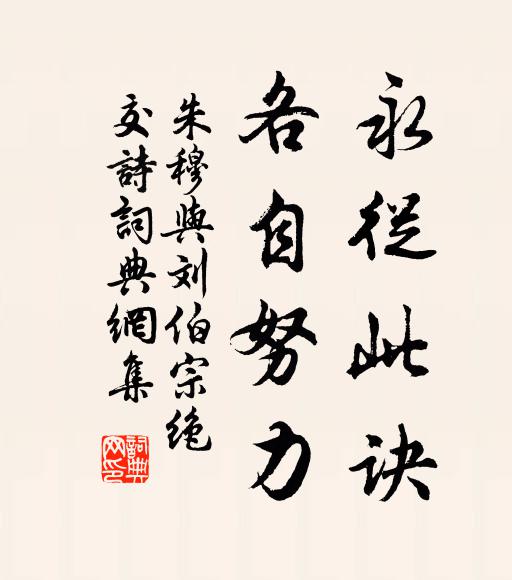 永從此訣
各自努力
朱穆與刘伯宗绝
交詩詞典網集
詞典
网印